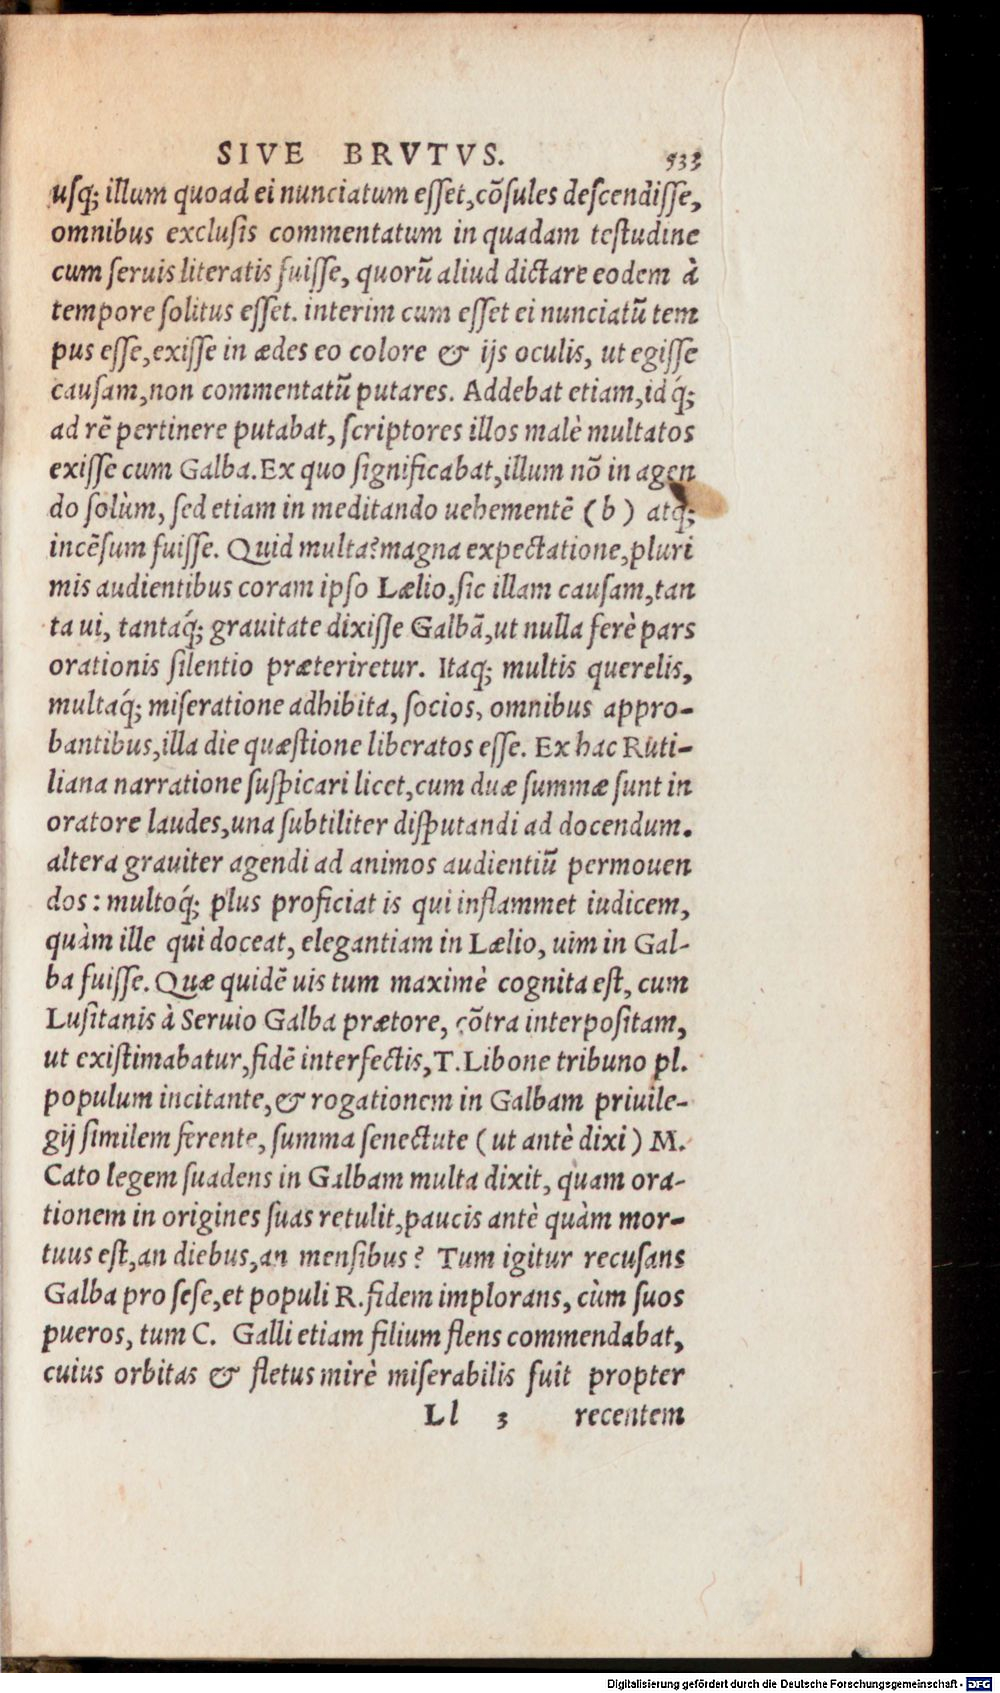 SIVE BRVTVS. 533
usq́; illum quoad ei nunciatum esset, cōsules descendisse,
omnibus exclusis commentatum in quadam testudine
cum seruis literatis fuisse, quorū aliud dictare eodem à
tempore solitus esset. interim cum esset ei nunciatū tem
pus esse, exisse in ædes eo colore & ijs oculis, ut egisse
causam, non commentatū putares. Addebat etiam, idq́;
ad rē pertinere putabat, scriptores illos malè multatos
exisse cum Galba. Ex quo significabat, illum nō in agen
do solùm, sed etiam in meditando uehementē (b) atq́;
incēsum fuisse. Quid multa? magna expectatione, pluri
mis audientibus coram ipso Lælio, sic illam causam, tan
ta ui, tantaq́; grauitate dixisse Galbā, ut nulla ferè pars
orationis silentio præteriretur. Itaq; multis querelis,
multaq́; miseratione adhibita, socios, omnibus appro-
bantibus, illa die quæstione liberatos esse. Ex hac Ruti-
liana narratione suspicari licet, cum duæ summæ sunt in
oratore laudes, una subtiliter disputandi ad docendum.
altera grauiter agendi ad animos audientiū permouen
dos: multoq́; plus proficiat is qui inflammet iudicem,
quàm ille qui doceat, elegantiam in Lælio, uim in Gal-
ba fuisse. Quæ quidē uis tum maximè cognita est, cum
Lusitanis à Seruio Galba prætore, cōtra interpositam,
ut existimabatur, fidē interfectis, T. Libone tribuno pl.
populum incitante, & rogationem in Galbam priuile-
gij similem ferente, summa senectute (ut antè dixi) M.
Cato legem suadens in Galbam multa dixit, quam ora-
tionem in origines suas retulit, paucis antè quàm mor-
tuus est, an diebus, an mensibus? Tum igitur recusans
Galba pro sese, et populi R. fidem implorans, cùm suos
pueros, tum C. Galli etiam filium flens commendabat,
cuius orbitas & fletus mirè miserabilis fuit propter
Ll 3 recentem
Digitalisierung gefördert durch die Deutsche Forschungsgemeinschaft - DFG